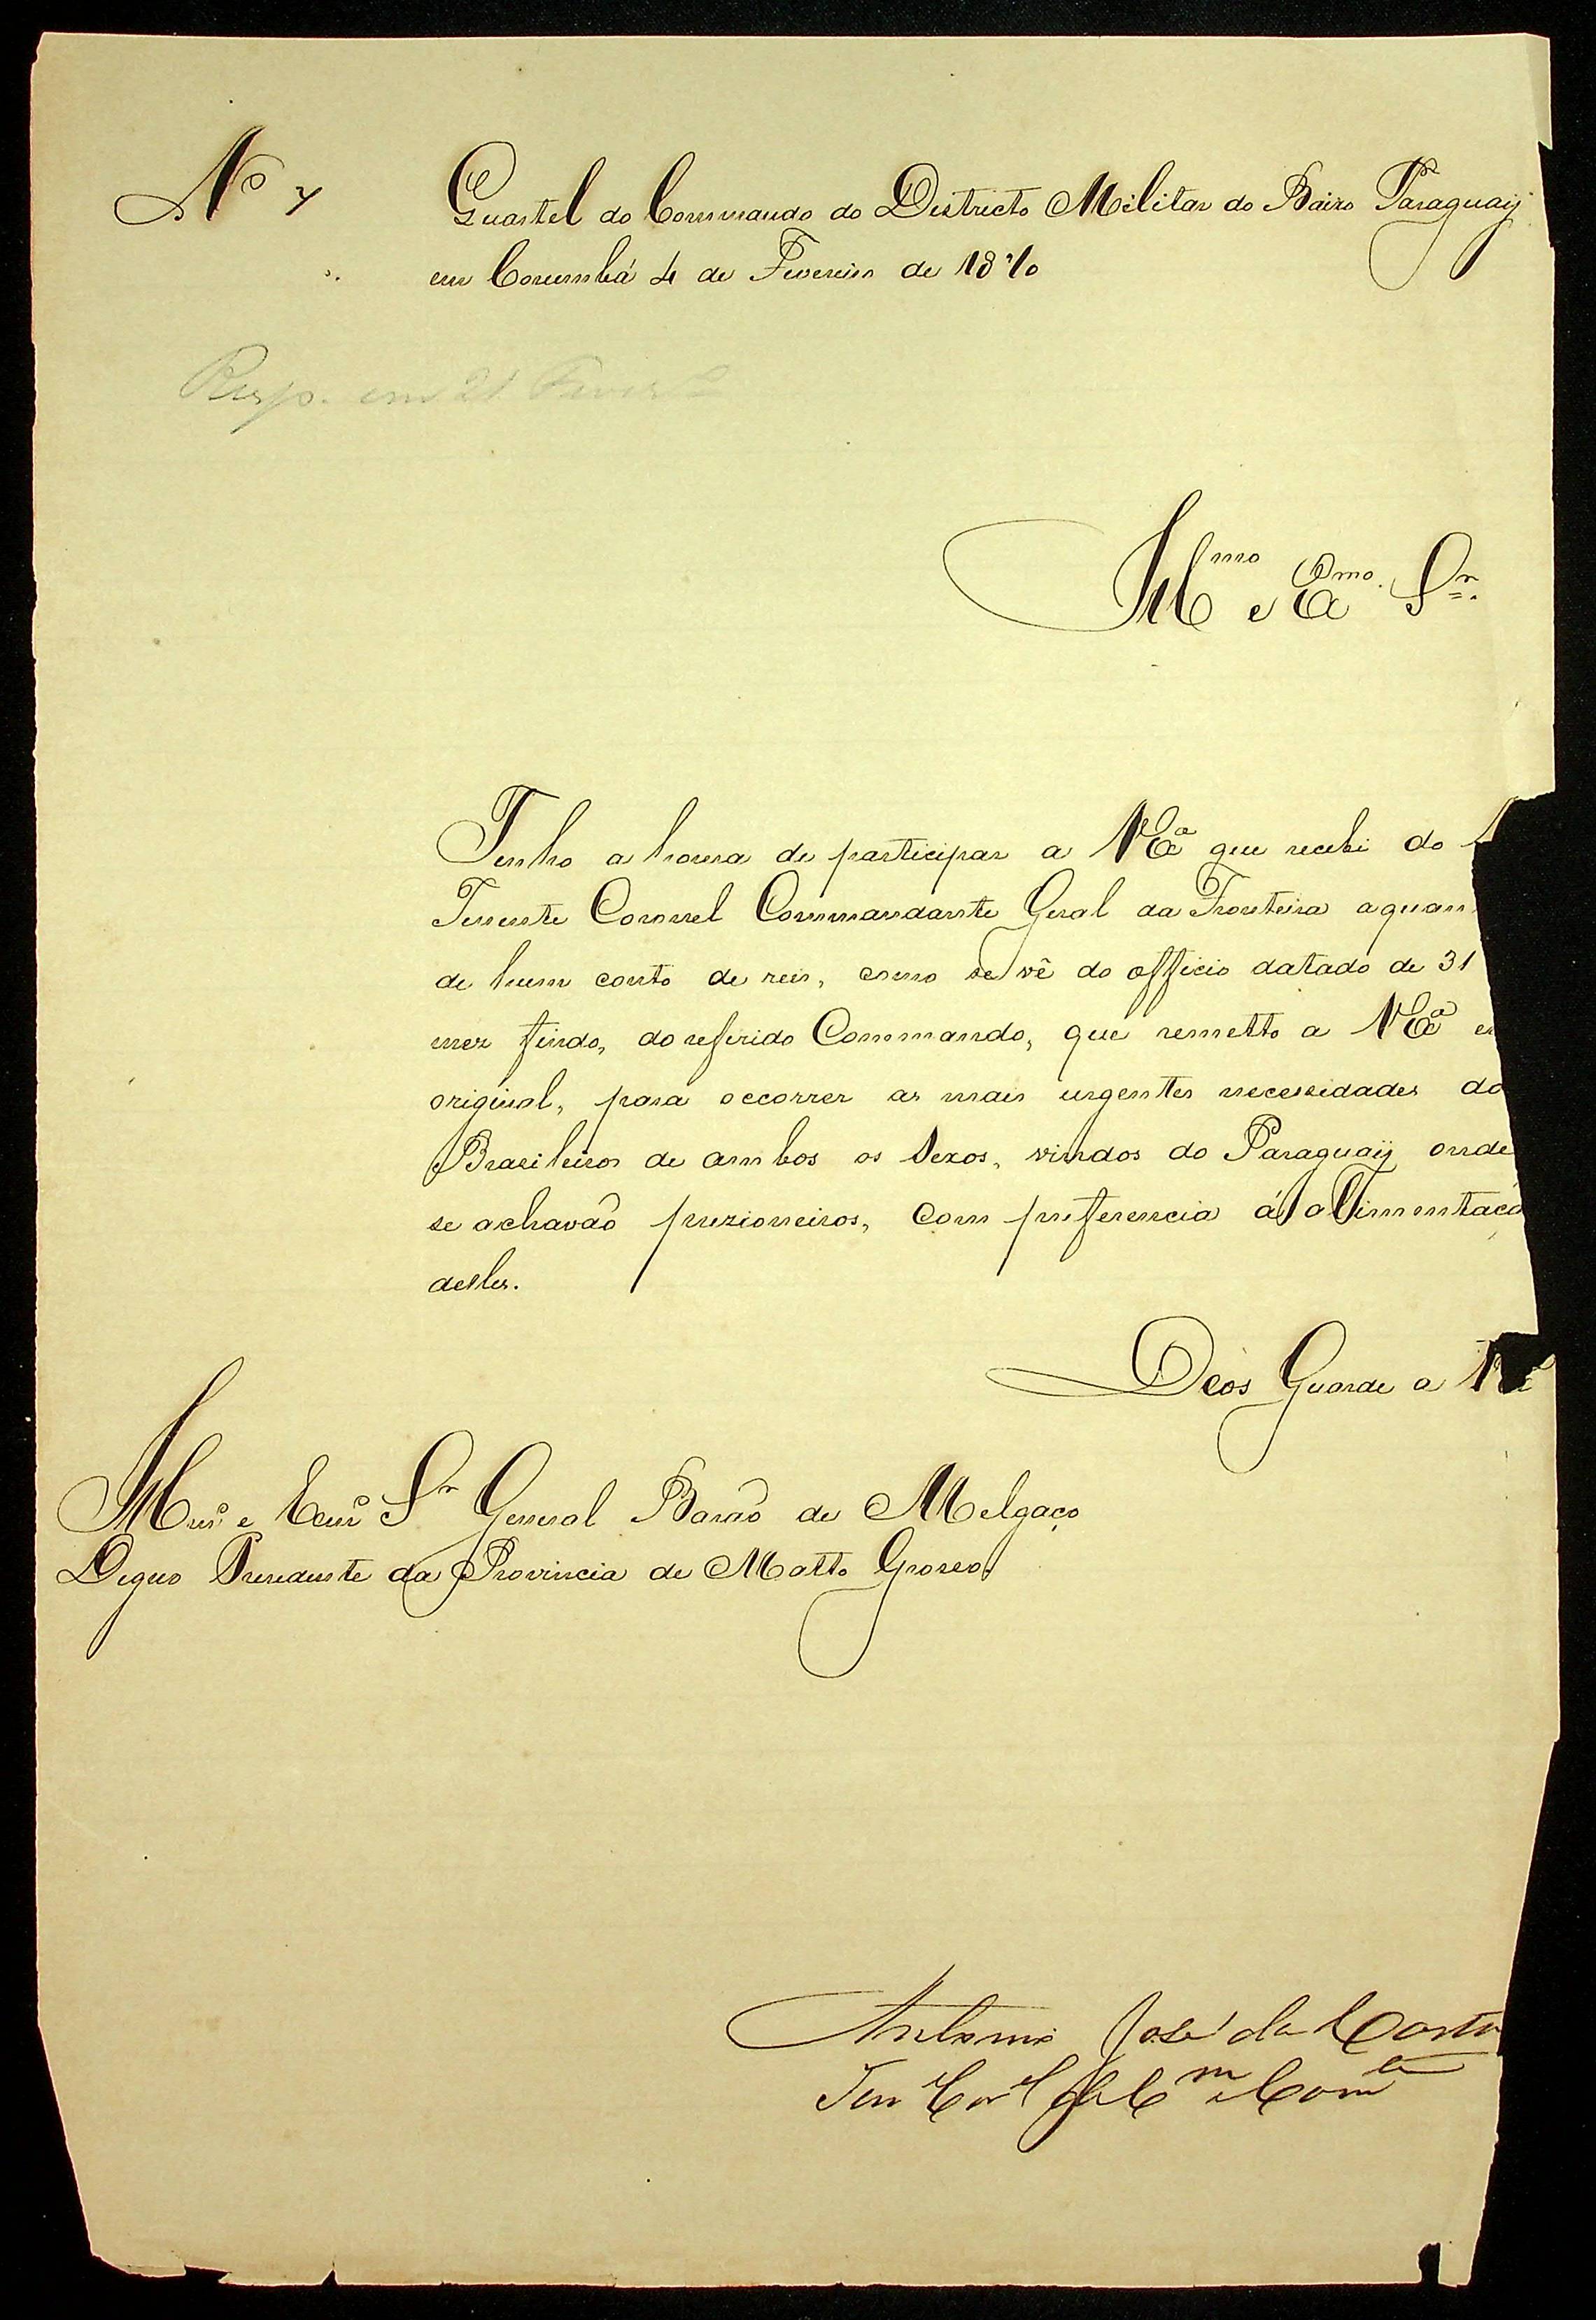 Nº 7
Quartel do Commando do Districto Militar do Baixo Paraguaÿ
em Corumbá 4 de Fevereiro de 1870
Resp. em 21 Fever.º
Illmo e Exmo. Snr.
Tenho a honra de participar a VExª que recebi do
Tenente Coronel Commandante Geral da Fronteira a quan
de hum conto de reis, como se vê do officio datado de 31
mez findo, do referido Commando, que remetto a VExª e
original, para occorrer as mais urgentes necessidades do
Brazileiros de ambos os Sexos, vindos do Paraguaÿ onde
se achavão prezioneiros, com preferencia á alimentaçã
delles.
Deos Guarde a VE
Illmº e Exmº Snr General Barão de Melgaço
Digno Prezidente da Provincia de Matto Grosso
Antonio José da Costa
Ten Corel Come